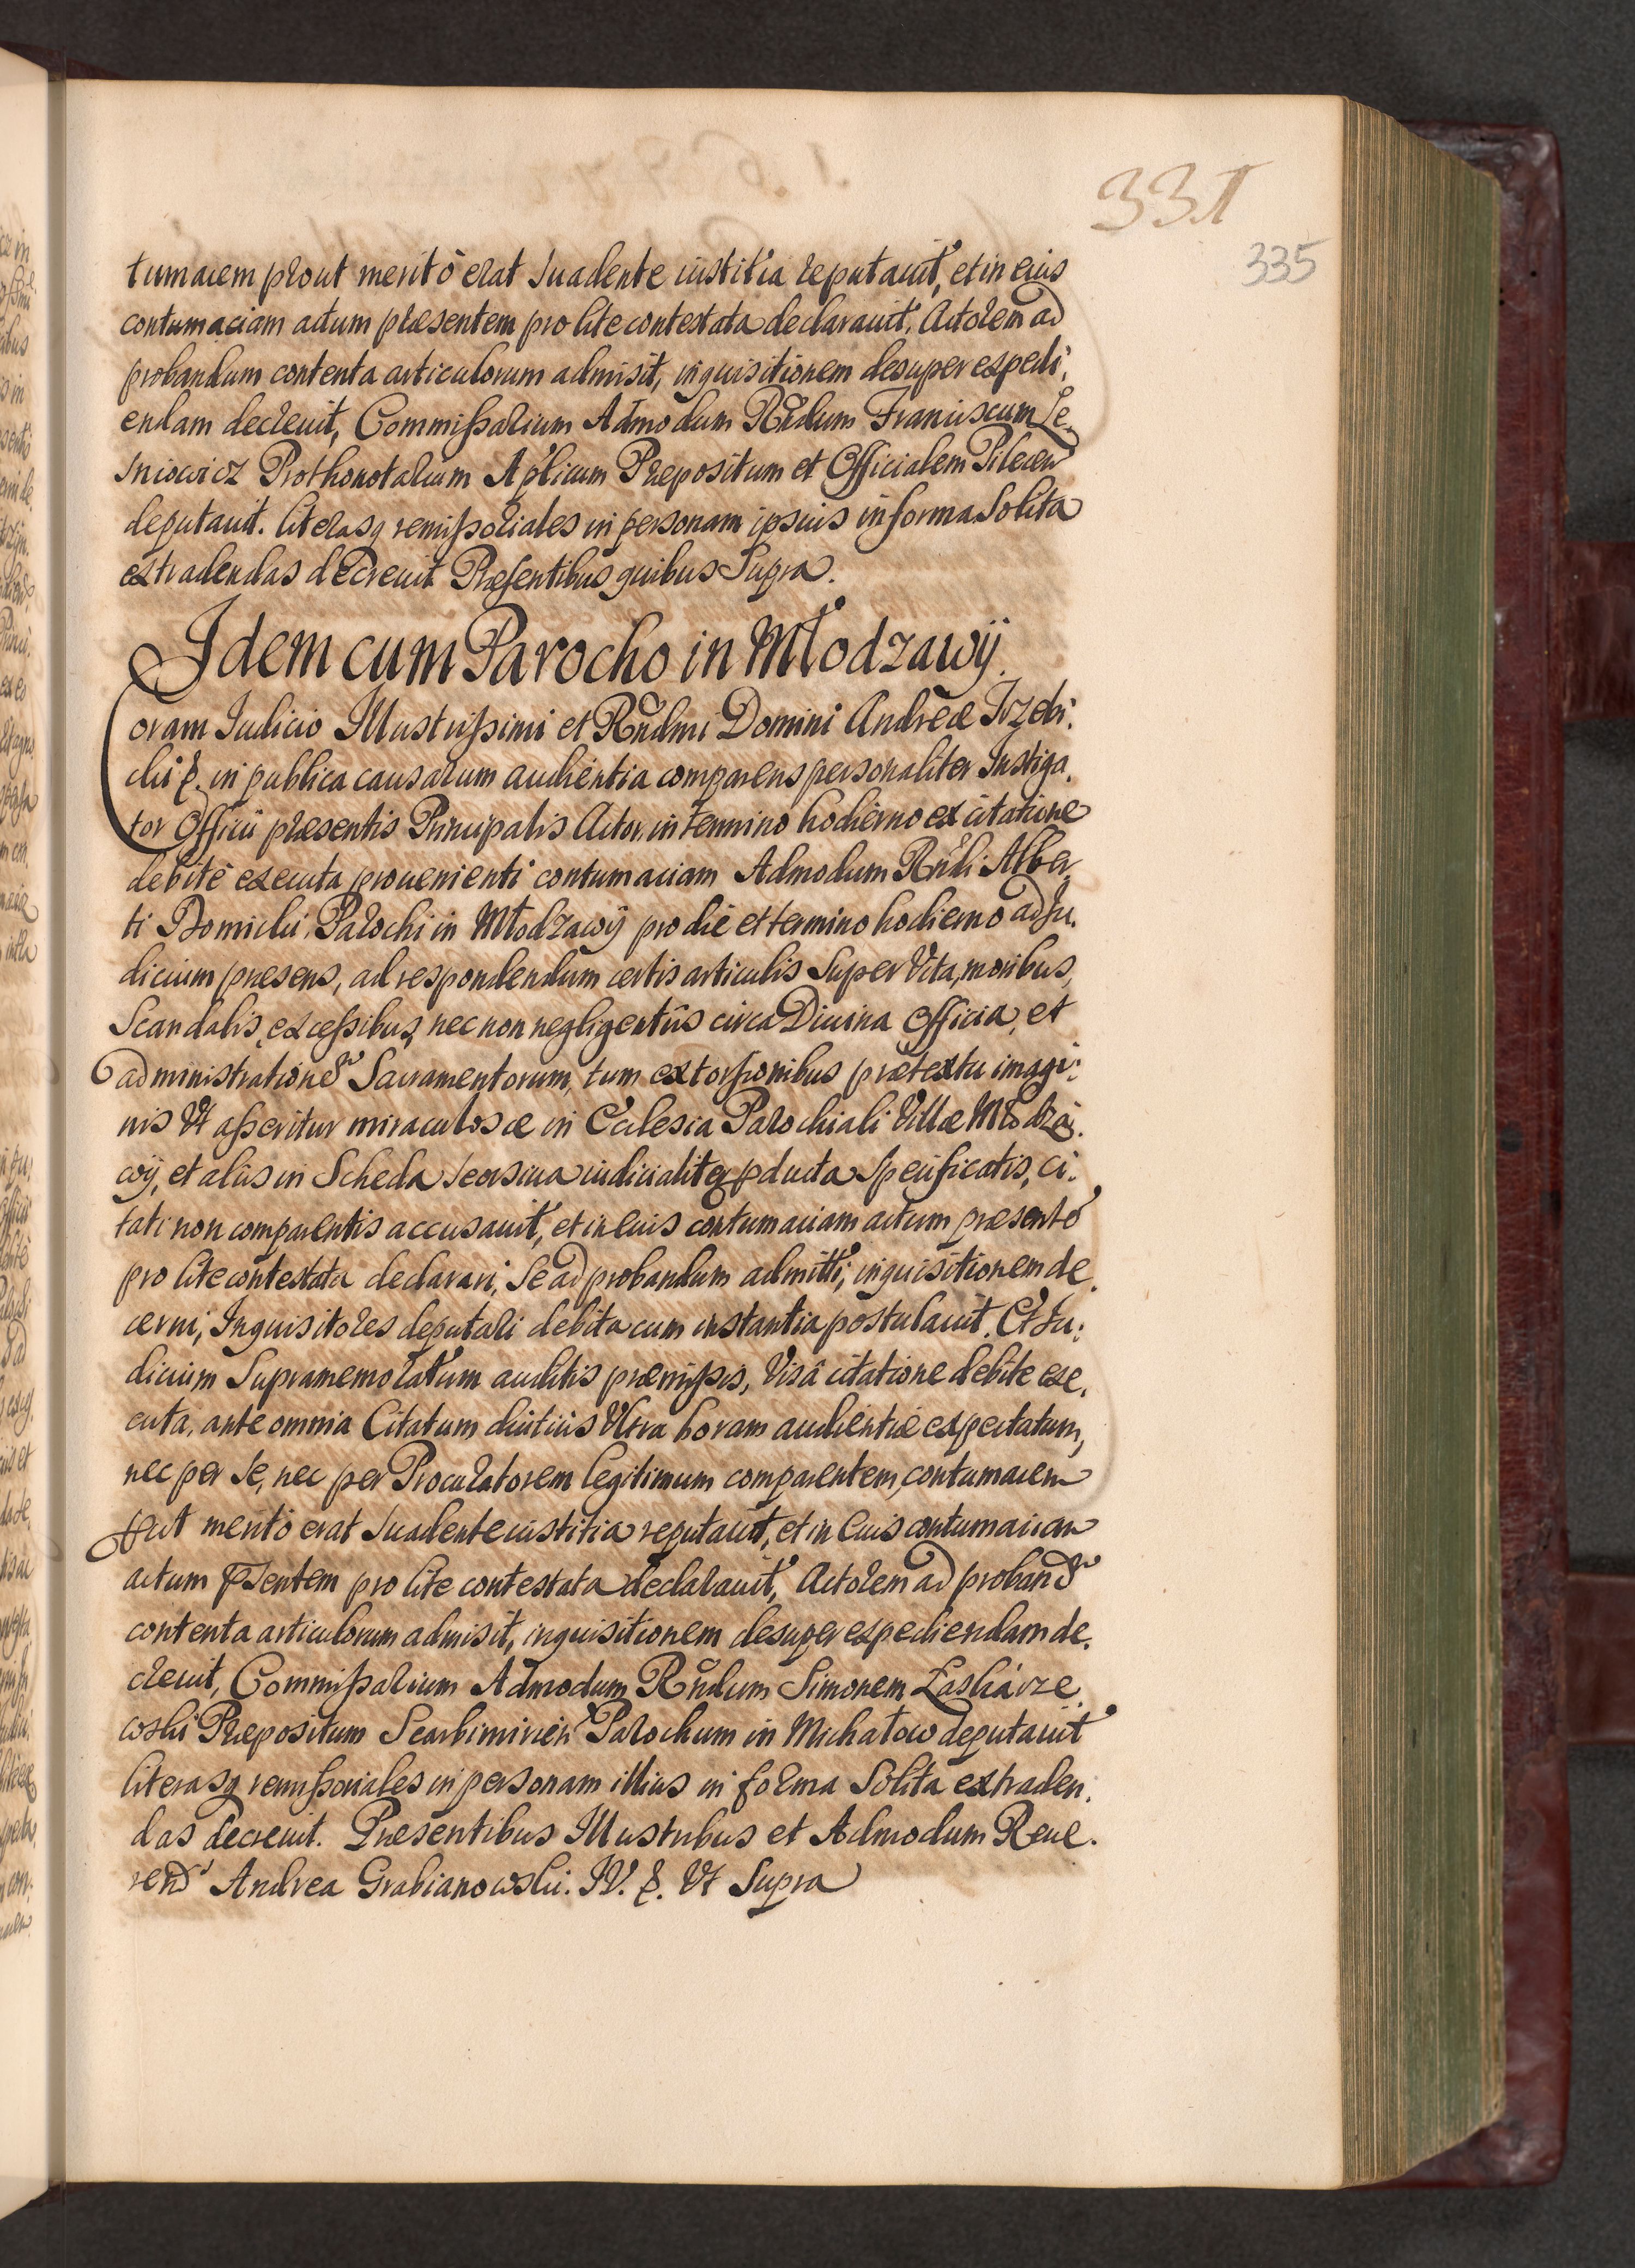 331
335
tumacem prout meritò erat suadente iustitia reputauit, et in eius
contumaciam actum præsentem pro lite contestata declarauit, Actorem ad
probandum contenta articulorum admisit, inquisitionem desuper expedi:
endam decreuit, Commissarium Admodum Rndum Franciscum Le-
sniowicz Prothonotarium Aplicum Præpositum et Officialem Pilecen
deputauit. literasq remissoriales in personam ipsius in forma solita
extradendas decreuit Præsentibus quibus Supra.
Idem cum Parocho in Młodzawÿ.
Coram Iudicio Illustrissimi et Rndmi Domini Andreæ Trzebi:
cki &. in publica causarum audientia comparens personaliter Instiga.
tor Officii præsentis Principalis Actor, in termino hodierno ex citatione
debitè executa prouenienti contumaciam Admodum Rndi Alber,
ti Domicki, Parochi in Młodzawÿ pro die et termino hodierno ad Iu.
dicium præsens, ad respondendum certis articulis super Vita, moribus,
Scandalis, excessibus, nec non negligentiis circa Diuina Officia, et
administratione Sacramentorum, tum extorsionibus prætextu imagi:
nis Vt asseritur miraculosæ in Ecclesia Parochiali Villæ Młodza:
wÿ, et aliis in Scheda seorsiua iudicialiter pducta specificatis, ci:
tati non comparentis accusauit, et in eius contumaciam actum præsente
pro lite contestata declarari, se ad probandum admitti, inquisitionem de.
cerni, Inquisitores deputari debita cum instantia postulauit. Et Iu:
dicium Supramemoratum auditis præmissis, Visâ citatione debite exe,
cuta, ante omnia Citatum diutius Vltra horam audientiæ expectatum,
nec per se, nec per Procuratorem legitimum comparentem, contumacem
put meritò erat suadente iustitia reputauit, et in eius contumaciam
actum psentem pro lite contestata declarauit, Actorem ad proband
contenta articulorum admisit, inquisitionem desuper expediendam de.
creuit, Commissarium Admodum Rndum Simonem Laskárze.
wski Præpositum Scarbimirien Parochum in Michałow deputauit
literasq remissoriales in personam illius in forma solita extraden.
das decreuit. Præsentibus Illustribus et Admodum Reue.
rend Andrea Grabianowski. IV. &. Vt Supra